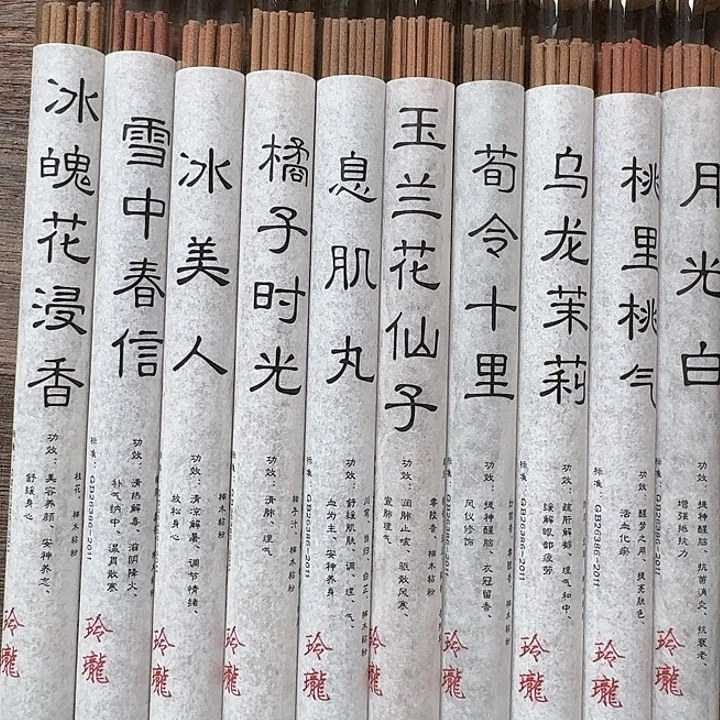 冰魄花浸香
功效：美容养颜、安神养念、
舒缓身心
桂花、楠木粘粉
玲瓏
雪中春信
功效：清热解毒、滋阴降火、
补气纳中、温胃散寒
标准：GB26386-2011
玲瓏
冰美人
功效：清凉解暑、调节情绪、
放松身心
玲瓏
橘子时光
功效：清肺、理气
橘子汁、楠木粘粉
标准：GB26386-2011
玲瓏
息肌丸
功效：舒缓肌肤、调、理气、
血为主、安神养身
玲瓏
玉兰花仙子
功效：润肺止咳、驱散风寒、
宣肺理气
零陵香、楠木粘粉
玲瓏
荀令十里
功效：提神醒脑、衣冠留香、
风仪修饰
标准：GB26386-2011
玲瓏
乌龙茉莉
功效：疏肝解郁、理气和中、
缓解眼部疲劳
标准：GB26386-2011
玲瓏
桃里桃气
功效：醒梦之用、提亮肤色、
活血化瘀
标准：GB26386-2011
玲瓏
月光白
功效：提神醒脑、抗菌消炎、抗衰老、
增强抵抗力
玲瓏